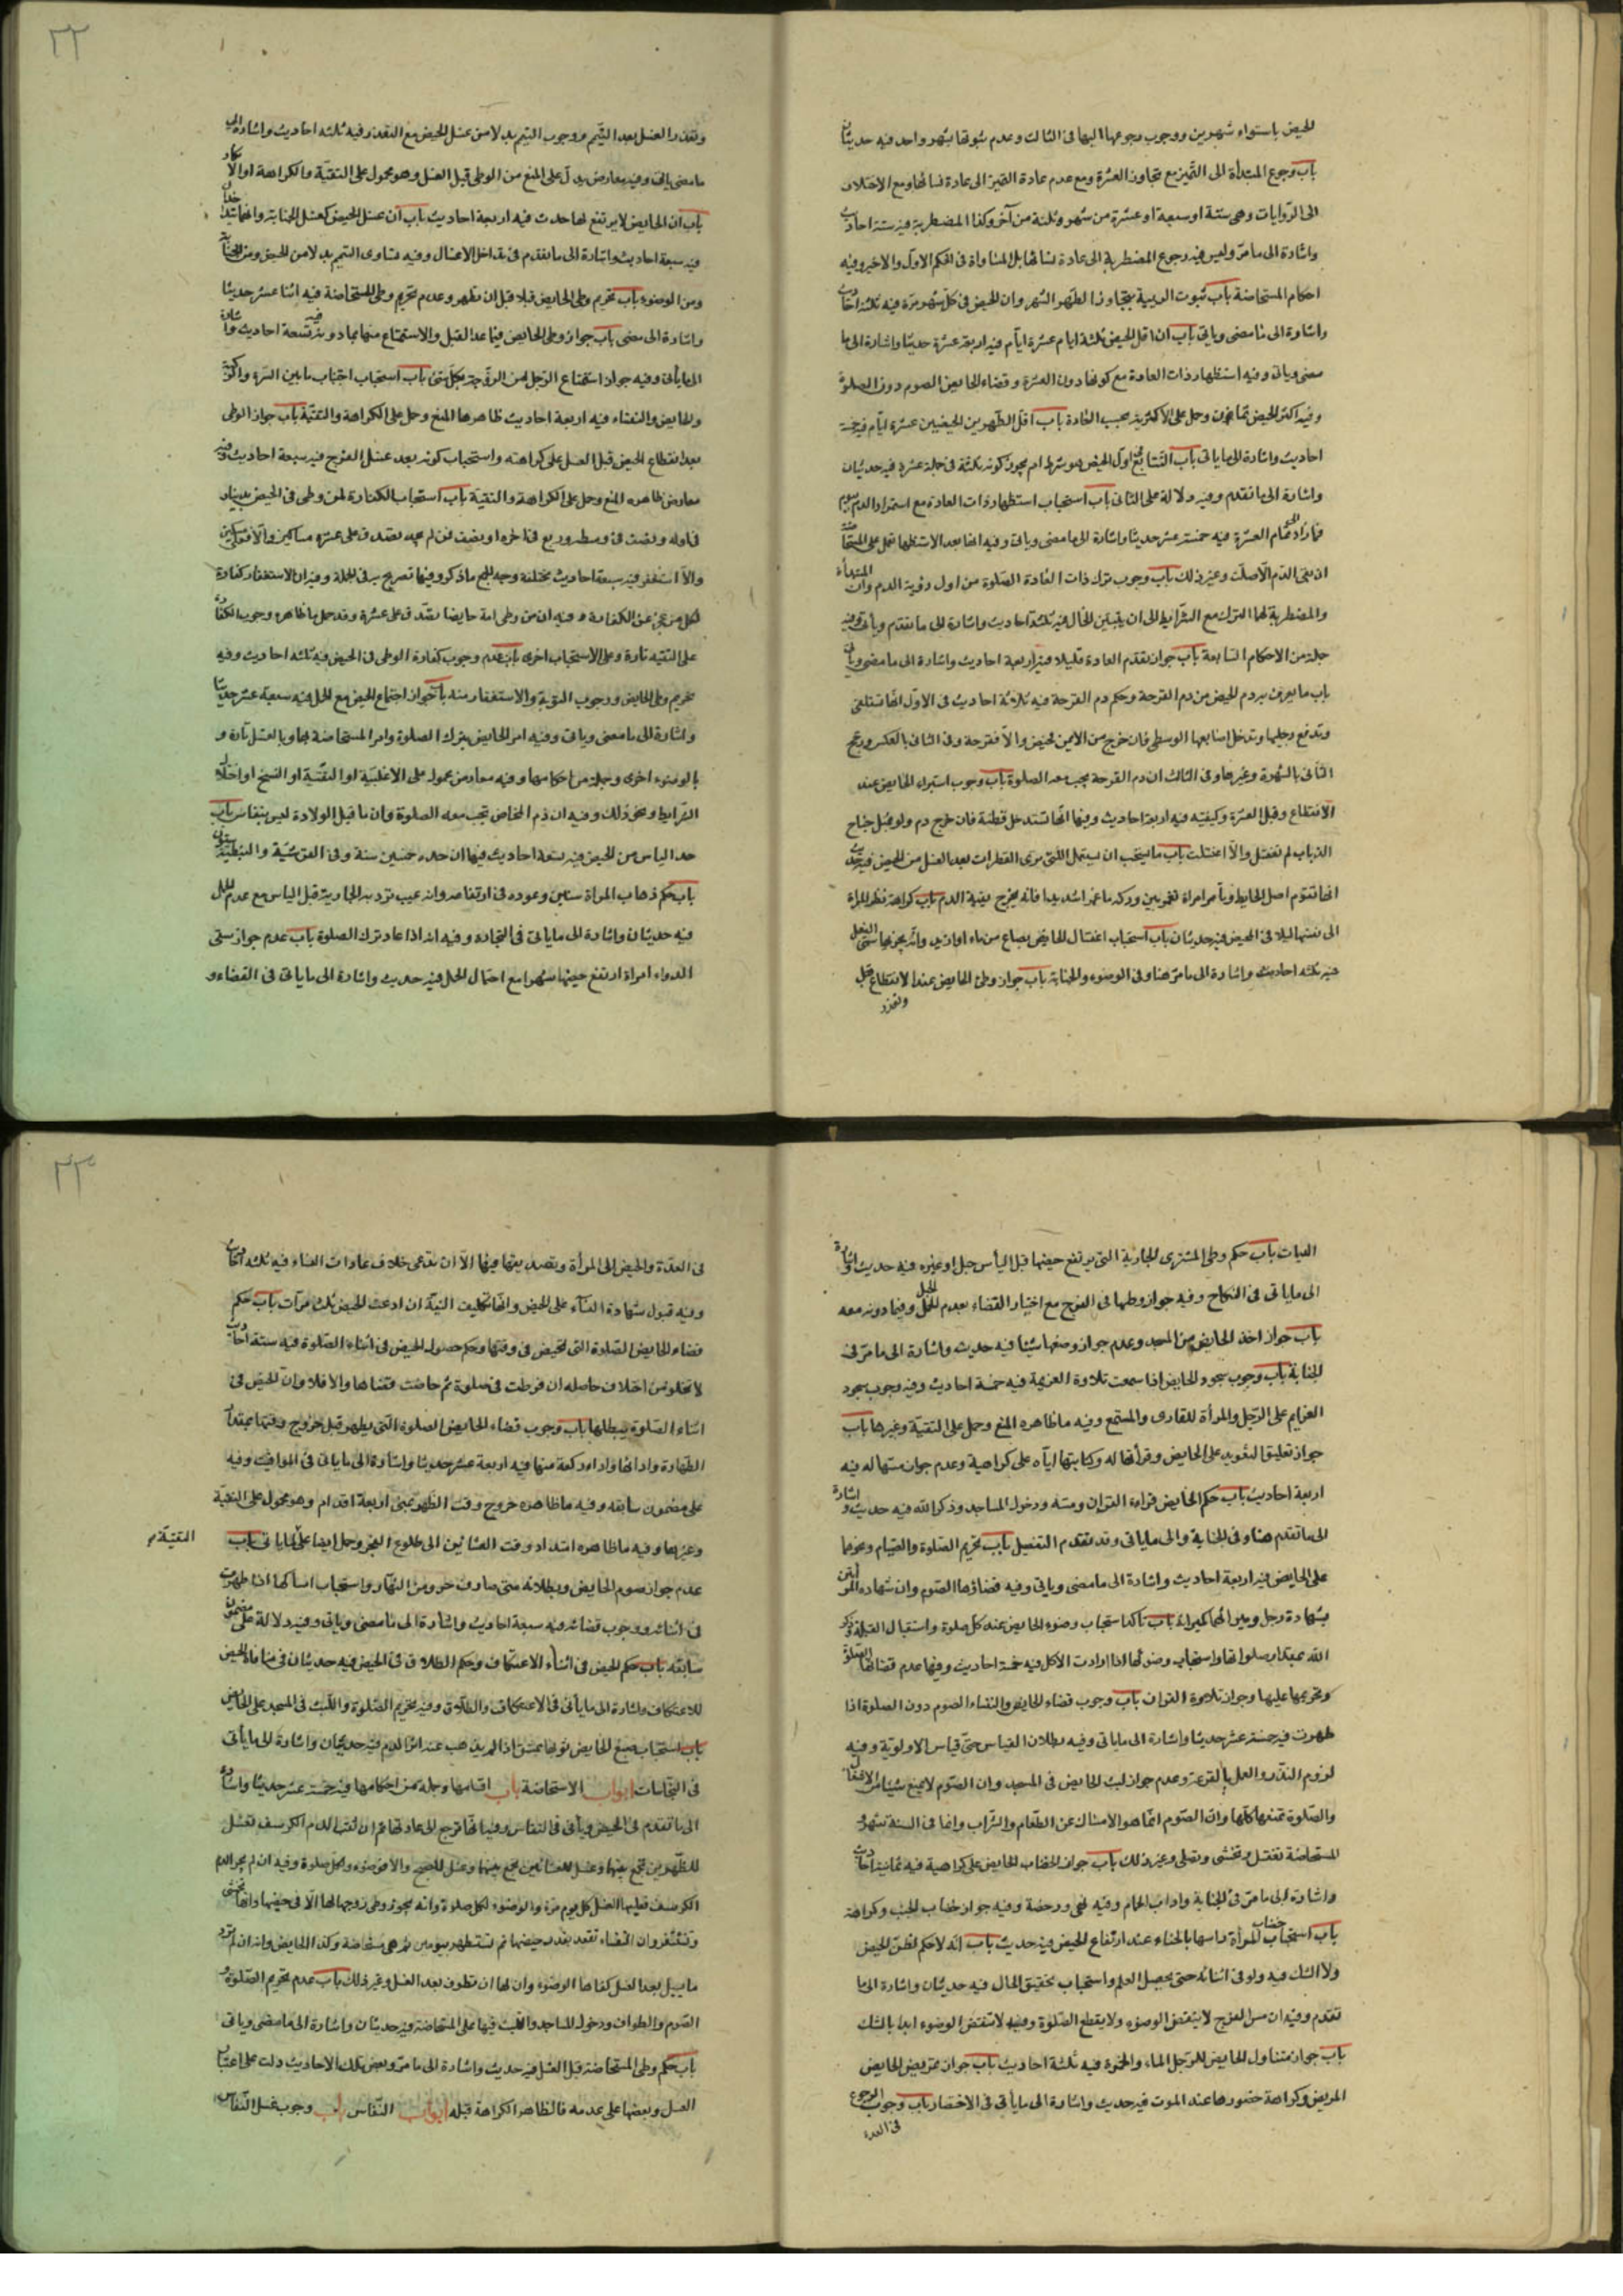 للحيض باستواء شهرين ووجوب رجوعها اليها فى الثالث وعدم ثبوتها بشهر واحد فيه حديثان
باب رجوع المبتدأة الى التميز مع تجاوز العشرة ومع عدم عادة التميز الى عادة نسائها ومع الاختلاف
الى الروايات وهى ستة او سبعة او عشرة من شهر وثلثة من آخر وكذا المضطربة فيه ستة احاديث
واشارة الى ما مر وليس فيه رجوع المضطربة الى عادة نسائها بل المساواة فى الحكم الاول والاخير وفيه
احكام المستحاضة باب ثبوت الريبة بتجاوز الطهر الشهر وان الحيض فى كل شهر مرة فيه ثلثة احاديث
واشارة الى ما مضى وياتى باب ان اقل الحيض ثلثة ايام عشرة ايام فيه اربعة عشرة حديثا واشارة الى ما
مضى وياتى وفيه استظهار ذات العادة مع كونها دون العشرة وقضاء الحايض الصوم دون الصلوة
وفيه اكثر الحيض ثمانون وحمل على الاكثرية بحسب العادة باب اقل الطهر بين الحيضين عشرة ايام فيه خمسة
احاديث واشارة الى ما ياتى باب التتابع اول الحيض هو شرط ام يجوز كونه ثلثة فى جملة عشرة فيه حديثان
واشارة الى ما تقدم وفيه دلالة على الثانى باب استحباب استظهار ذات العادة مع استمرار الدم بيوم
فما زاد الى تمام العشرة فيه خمسة عشر حديثا واشارة الى ما مضى وياتى وفيه انها بعد الاستظهار تعمل عمل المستحاضة
ان بقى الدم الا صلت وغير ذلك باب وجوب ترك ذات العادة الصلوة من اول رؤية الدم وان المبتدأة
والمضطربة لهما الترك مع الشرائط الى ان يتبين الحال فيه ثلثة احاديث واشارة الى ما تقدم وياتى وفيه
جملة من الاحكام السابعة باب جواز تقدم العادة قليلا فيه اربعة احاديث واشارة الى ما مضى وياتى
باب ما يعرف به دم الحيض من دم القرحة وحكم دم القرحة فيه ثلاثة احاديث فى الاول انها تستلقى
وترفع رجليها وتدخل اصابعها الوسطى فان خرج من الايمن فحيض والا فقرحة وفى الثانى بالعكس ورجح
الثانى بالشهرة وغيرها وفى الثالث ان دم القرحة يجب معه الصلوة باب وجوب استبراء الحايض عند
الانقطاع وقبل العشرة وكيفيته فيه اربعة احاديث وفيها انها تستدخل قطنة فان خرج دم ولو مثل جناح
الذباب لم تغتسل والا اغتسلت باب ما يستحب ان يستعمل اللتى ترى القطرات بعد الغسل من الحيض فيه حديث
انها تقوم اصل الحايط وتأمر امرأة تغمز بين وركيه غمزا شديدا فانه يخرج بقية الدم باب كراهة نظر المرأة
الى نفسها ليلا فى الحيض فيه حديثان باب استحباب اغتسال الحايض بصاع من ماء او ازيد وانه يجزيها مسمى الغسل
فيه ثلثه احاديث واشارة الى ما مر هنا وفى الوضوء والجنابة باب جواز وطى الحايض عند الانقطاع قبل
وتعذر
٢٢
وتعذر الغسل بعد التيمم ووجوب التيمم بدلا من غسل الحيض مع التعذر وفيه ثلثه احاديث واشارة الى
ما مضى ياتى وفيه معارض يدل على المنع من الوطى قبل الغسل وهو محمول على التقية والكراهة او الانكار
باب ان الحايض لا يرتفع لها حدث فيه اربعة احاديث باب ان غسل الحيض كغسل الجنابة وانهما يتداخلان
فيه سبعة احاديث واشارة الى ما تقدم فى تداخل الاغسال وفيه تساوى التيمم بدلا من الحيض ومن الجنابة
ومن الوضوء باب تحريم وطى الحايض قبلا قبل ان تطهر وعدم تحريم وطى المستحاضة فيه اثنا عشر حديثا
واشارة الى مضى باب جواز وطى الحائض فيما عدا القبل والاستمتاع منها بما دونه فيه تسعة احاديث واشارة
الى ما يأتى وفيه جواز استمتاع الرجل من الزوجة بكل شئ باب استحباب اجتناب ما بين السرة والركبة
والحايض والنفساء فيه اربعة احاديث ظاهرها المنع وحمل على الكراهة والتقية باب جواز الوطى
بعد انقطاع الحيض قبل الغسل على كراهته واستحباب كونه بعد غسل الفرج فيه سبعة احاديث وفيه
معارض ظاهره المنع وحمل على الكراهة والتقية باب استحباب الكفارة لمن وطى فى الحيض بدينار
فى اوله ونصف فى وسطه وربع فى اخره او نصف فان لم يجد تصدق على عشرة مساكين والا فمسكين
والا استغفر فيه سبعة احاديث مختلفة وجه الجمع ما ذكر وفيها تصريح به فى الجملة وفيه ان الاستغفار كفارة
لكل من عجز عن الكفارة وفيه ان من وطى امة حايضا تصدق على عشرة وقد حمل ما ظاهره وجوب الكفارة
على التقيه تارة وعلى الاستحباب اخرى باب عدم وجوب كفارة الوطى فى الحيض فيه ثلثه احاديث وفيه
تحريم وطى الحايض ووجوب التوبة والاستغفار منه باب جواز اجتماع الحيض مع الحمل فيه سبعة عشر حديثا
واشارة الى ما مضى وياتى وفيه امر الحايض بترك الصلوة وامر المستحاضة بها وبالغسل تارة و
بالوضوء اخرى وجملة من احكامها وفيه معارض محمول على الاغلبية او التقية او النسخ او اختلال
الشرايط ونحو ذلك وفيه ان دم المخاض تجب معه الصلوة وان ما قبل الولادة ليس بنفاس باب
حد الياس من الحيض فيه تسعة احاديث فيها ان حده خمسين سنة وفى القرشية والنبطية ستون
باب حكم ذهاب المراة سنتين وعوده فى ارتفاعه وانه عيب ترد به الجارية قبل الياس مع عدم الحمل
فيه حديثان واشارة الى ما ياتى فى التجارة وفيه انه اذا عاد ترك الصلوة باب عدم جواز سقى
الدواء امراة ارتفع حيضها شهرا مع احتمال الحمل فيه حديث واشارة الى ما ياتى فى القضاء و
الديات باب حكم وطى المشترى الجارية التى يرتفع حيضها قبل اليأس حبل او غيره فيه حديث واشارة
الى ما ياتى فى النكاح وفيه جواز وطيها فى الفرج مع اختيار القضاء بعدم الحمل وفيما دونه معه
باب جواز اخذ الحايض من المسجد وعدم جواز وضعها شيئا فيه حديث واشارة الى ما مر فى
الجنابة باب وجوب سجود الحايض اذا سمعت تلاوة العزيمة فيه خمسة احاديث وفيه وجوب سجود
العزايم على الرجل والمرأة للقارى والمستمع وفيه ما ظاهره المنع وحمل على التقية وغيرها باب
جواز تعليق التعويذ على الحايض وقرأتها له وكتابتها اياه على كراهية وعدم جواز مسها له فيه
اربعة احاديث باب حكم الحايض قراءة القران ومسه ودخول المساجد وذكر الله فيه حديث واشارة
الى ما تقدم هنا وفى الجنابة والى ما ياتى وقد تقدم التفصيل باب تحريم الصلوة والصيام ونحوهما
على الحايض فيه اربعة احاديث واشارة الى ما مضى وياتى وفيه قضاؤها الصوم وان شهادة المراتين
بشهادة رجل وميراثهما كميراثه باب تاكد استحباب وضوء الحايض عند كل صلوة واستقبال القبلة وذكر
الله بمقدار صلواتها واستحباب وضوئها اذا ارادت الاكل فيه خمسة احاديث وفيها عدم قضائها الصلوة
وتحريمها عليها وجواز تلاوة القران باب وجوب قضاء الحايض والنفساء الصوم دون الصلوة اذا
طهرت فيه خمسة عشر حديثا واشارة الى ما ياتى وفيه بطلان القياس حتى قياس الاولوية وفيه
لزوم النذر والعمل بالقرعة وعدم جواز لبث الحايض فى المسجد وان الصوم لا يمنع شيئا من الافعال
والصلوة تمنعها كلها وان الصوم انما هو الامساك عن الطعام والشراب وانما فى السنة شهر و
المستحاضة تغتسل وتحتشى وتصلى وغير ذلك باب جواز الخضاب للحايض على كراهية فيه ثمانية احاديث
واشارة الى ما مر فى الجنابة واداب الحمام وفيه نهى ورخصة وفيه جواز خضاب الجنب وكراهته
باب استحباب خضاب المرأة راسها بالحناء عند ارتفاع الحيض فيه حديث باب انه لا حكم لظن الحيض
ولا الشك فيه ولو فى اثنائه حتى يحصل العلم واستحباب تحقيق الحال فيه حديثان واشارة الى ما
تقدم وفيه ان مس الفرج لا ينقض الوضوء ولا يقطع الصلوة وفيه لا تنقض الوضوء ابدا بالشك
باب جواز مناول الحايض للرجل الماء والخمرة فيه ثلثة احاديث باب جواز تمريض الحايض
المريض وكراهة حضورها عند الموت فيه حديث واشارة الى ما يأتى فى الاحتضار باب وجوب الرجوع
فى العدة
٢٣
فى العدة والحيض الى المرأة وتصديقها فيها الا ان تدعى خلاف عادات النساء فيه ثلثه احاديث
وفيه قبول شهادة النساء على الحيض وانها تكليف البينة ان ادعت الحيض ثلث مرات باب حكم
قضاء الحايض الصلوة التى تحيض فى وقتها وحكم حصول الحيض فى اثناء الصلوة فيه ستة احاديث
لا تخلو من اختلاف حاصله ان فرطت فى صلوة ثم حاضت قضاها والا فلا وان الحيض فى
اثناء الصلوة يبطلها باب وجوب قضاء الحايض الصلوة التى يطهر قبل خروج وقتها بمقدار
الطهارة وادائها واداء ركعة منها فيه اربعة عشر حديثا واشارة الى ما ياتى فى المواقيت وفيه
على مضمون سابقه وفيه ما ظاهره خروج وقت الظهر بمضى اربعة اقدام وهو محمول على التقية
وغيرها وفيه ما ظاهره امتداد وقت العشائين الى طلوع الفجر وحمل ايضا على ما ياتى باب
التقية م
عدم جواز صوم الحايض وبطلانه متى صادف جزء من النهار واستحباب امساكها اذا طهرت
فى اثنائه ووجوب قضائه فيه سبعة احاديث واشارة الى ما مضى وياتى وفيه دلالة على مضمون
سابقه باب حكم الحيض فى اثناء الاعتكاف وحكم الطلاق فى الحيض فيه حديثان فى منافاة الحيض
للاعتكاف واشارة الى ما يأتى فى الاعتكاف والطلاق وفيه تحريم الصلوة واللبث فى المسجد على الحايض
باب استحباب صبغ الحايض ثوبها بمشق اذا لم يذهب عنه اثر الدم فيه حديثان واشارة الى ما يأتى
فى النجاسات ابواب الاستحاضة باب اقسامها وجملة من احكامها فيه خمسة عشر حديثا واشارة
الى ما تقدم فى الحيض ويأتى فى النفاس وفيه انها ترجع الى عادتها ثم ان ثقب الدم الكرسف تغتسل
للظهرين تجمع بينهما وغسل للعشائين تجمع بينهما وغسل للصبح والا فوضوء ولكل صلوة وفيه ان لم يجز الدم
الكرسف فعليها الغسل كل يوم مرة والوضوء لكل صلوة وانه يجوز وطى زوجها لها الا فى حيضها وانها تحتشى
وتستثفر وان النفساء تقعد بقدر حيضها ثم تستظهر بيومين ثم هى مستحاضة وكذا الحايض وانه ان لم ترد
ما يسيل بعد الغسل كفاها الوضوء وان لها ان تطوف بعد الغسل وغير ذلك باب عدم تحريم الصلوة و
الصوم والطواف ودخول المساجد واللبث فيها على المستحاضة فيه حديثان واشارة الى ما مضى وياتى
باب حكم وطى المستحاضة قبل الغسل فيه حديث واشارة الى ما مر وبعض تلك الاحاديث دلت على اعتبار
الغسل وبعضها على عدمه فالظاهر الكراهة قبله ابواب النفاس باب وجوب غسل النفاس